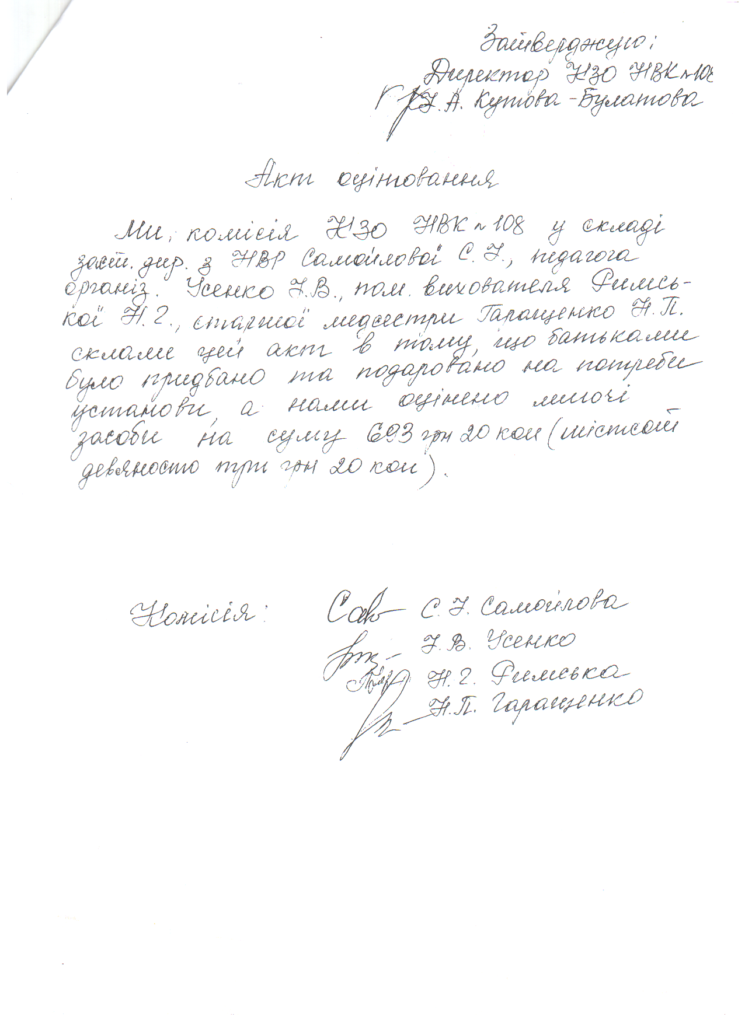 Затверджую:
Директор КЗО НВК №108
І. А. Кутова-Булатова
Акт оцінювання
Ми, комісія КЗО НВК №108 у складі
заст. дир. з НВР Самойлової С. І., педагога
організ. Усенко І.В., пом. вихователя Римсь-
кої Н. Г., старшої медсестри Гаращенко Н.П.
склали цей акт в тому, що батьками
було придбано та подаровано на потреби
установи, а нами оцінено миючі
засоби на суму 693 грн 20 коп (шістсот
девяносто три грн 20 коп).
Комісія:
С. І. Самойлова
І. В. Усенко
Н. Г. Римська
Н.П. Гаращенко